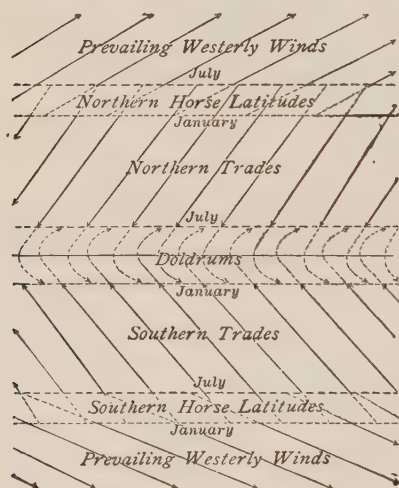 Prevailing Westerly Winds
July
Northern Horse Latitudes
January
Northern Trades
July
Doldrums
January
Southern Trades
July
Southern Horse Latitudes
January
Prevailing Westerly Winds